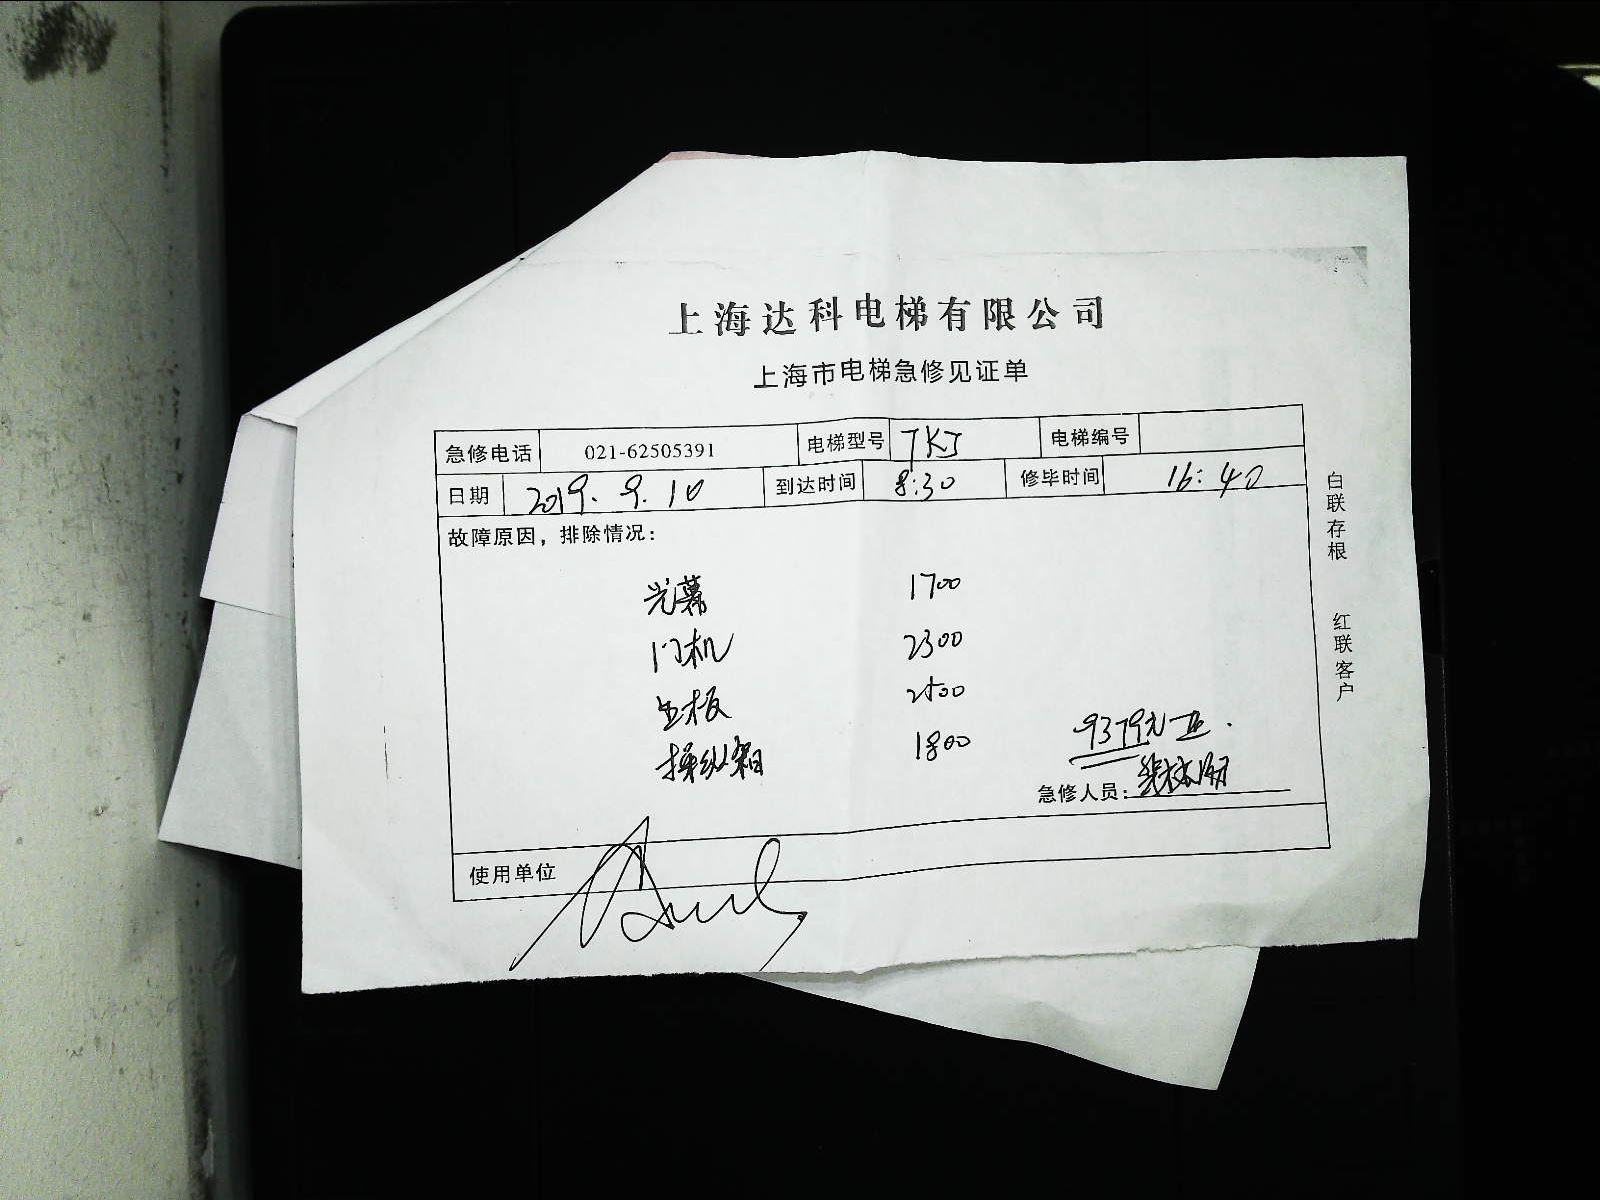 上海达科电梯有限公司
上海市电梯急修见证单
急修电话 021-62505391 电梯型号 TKJ 电梯编号
日期 2019.9.10 到达时间 8:30 修毕时间 16:40
故障原因，排除情况：
光幕 1700
门机 2300
主板 2500
操纵箱 1800
9379元正.
急修人员：
使用单位
白联存根 红联客户